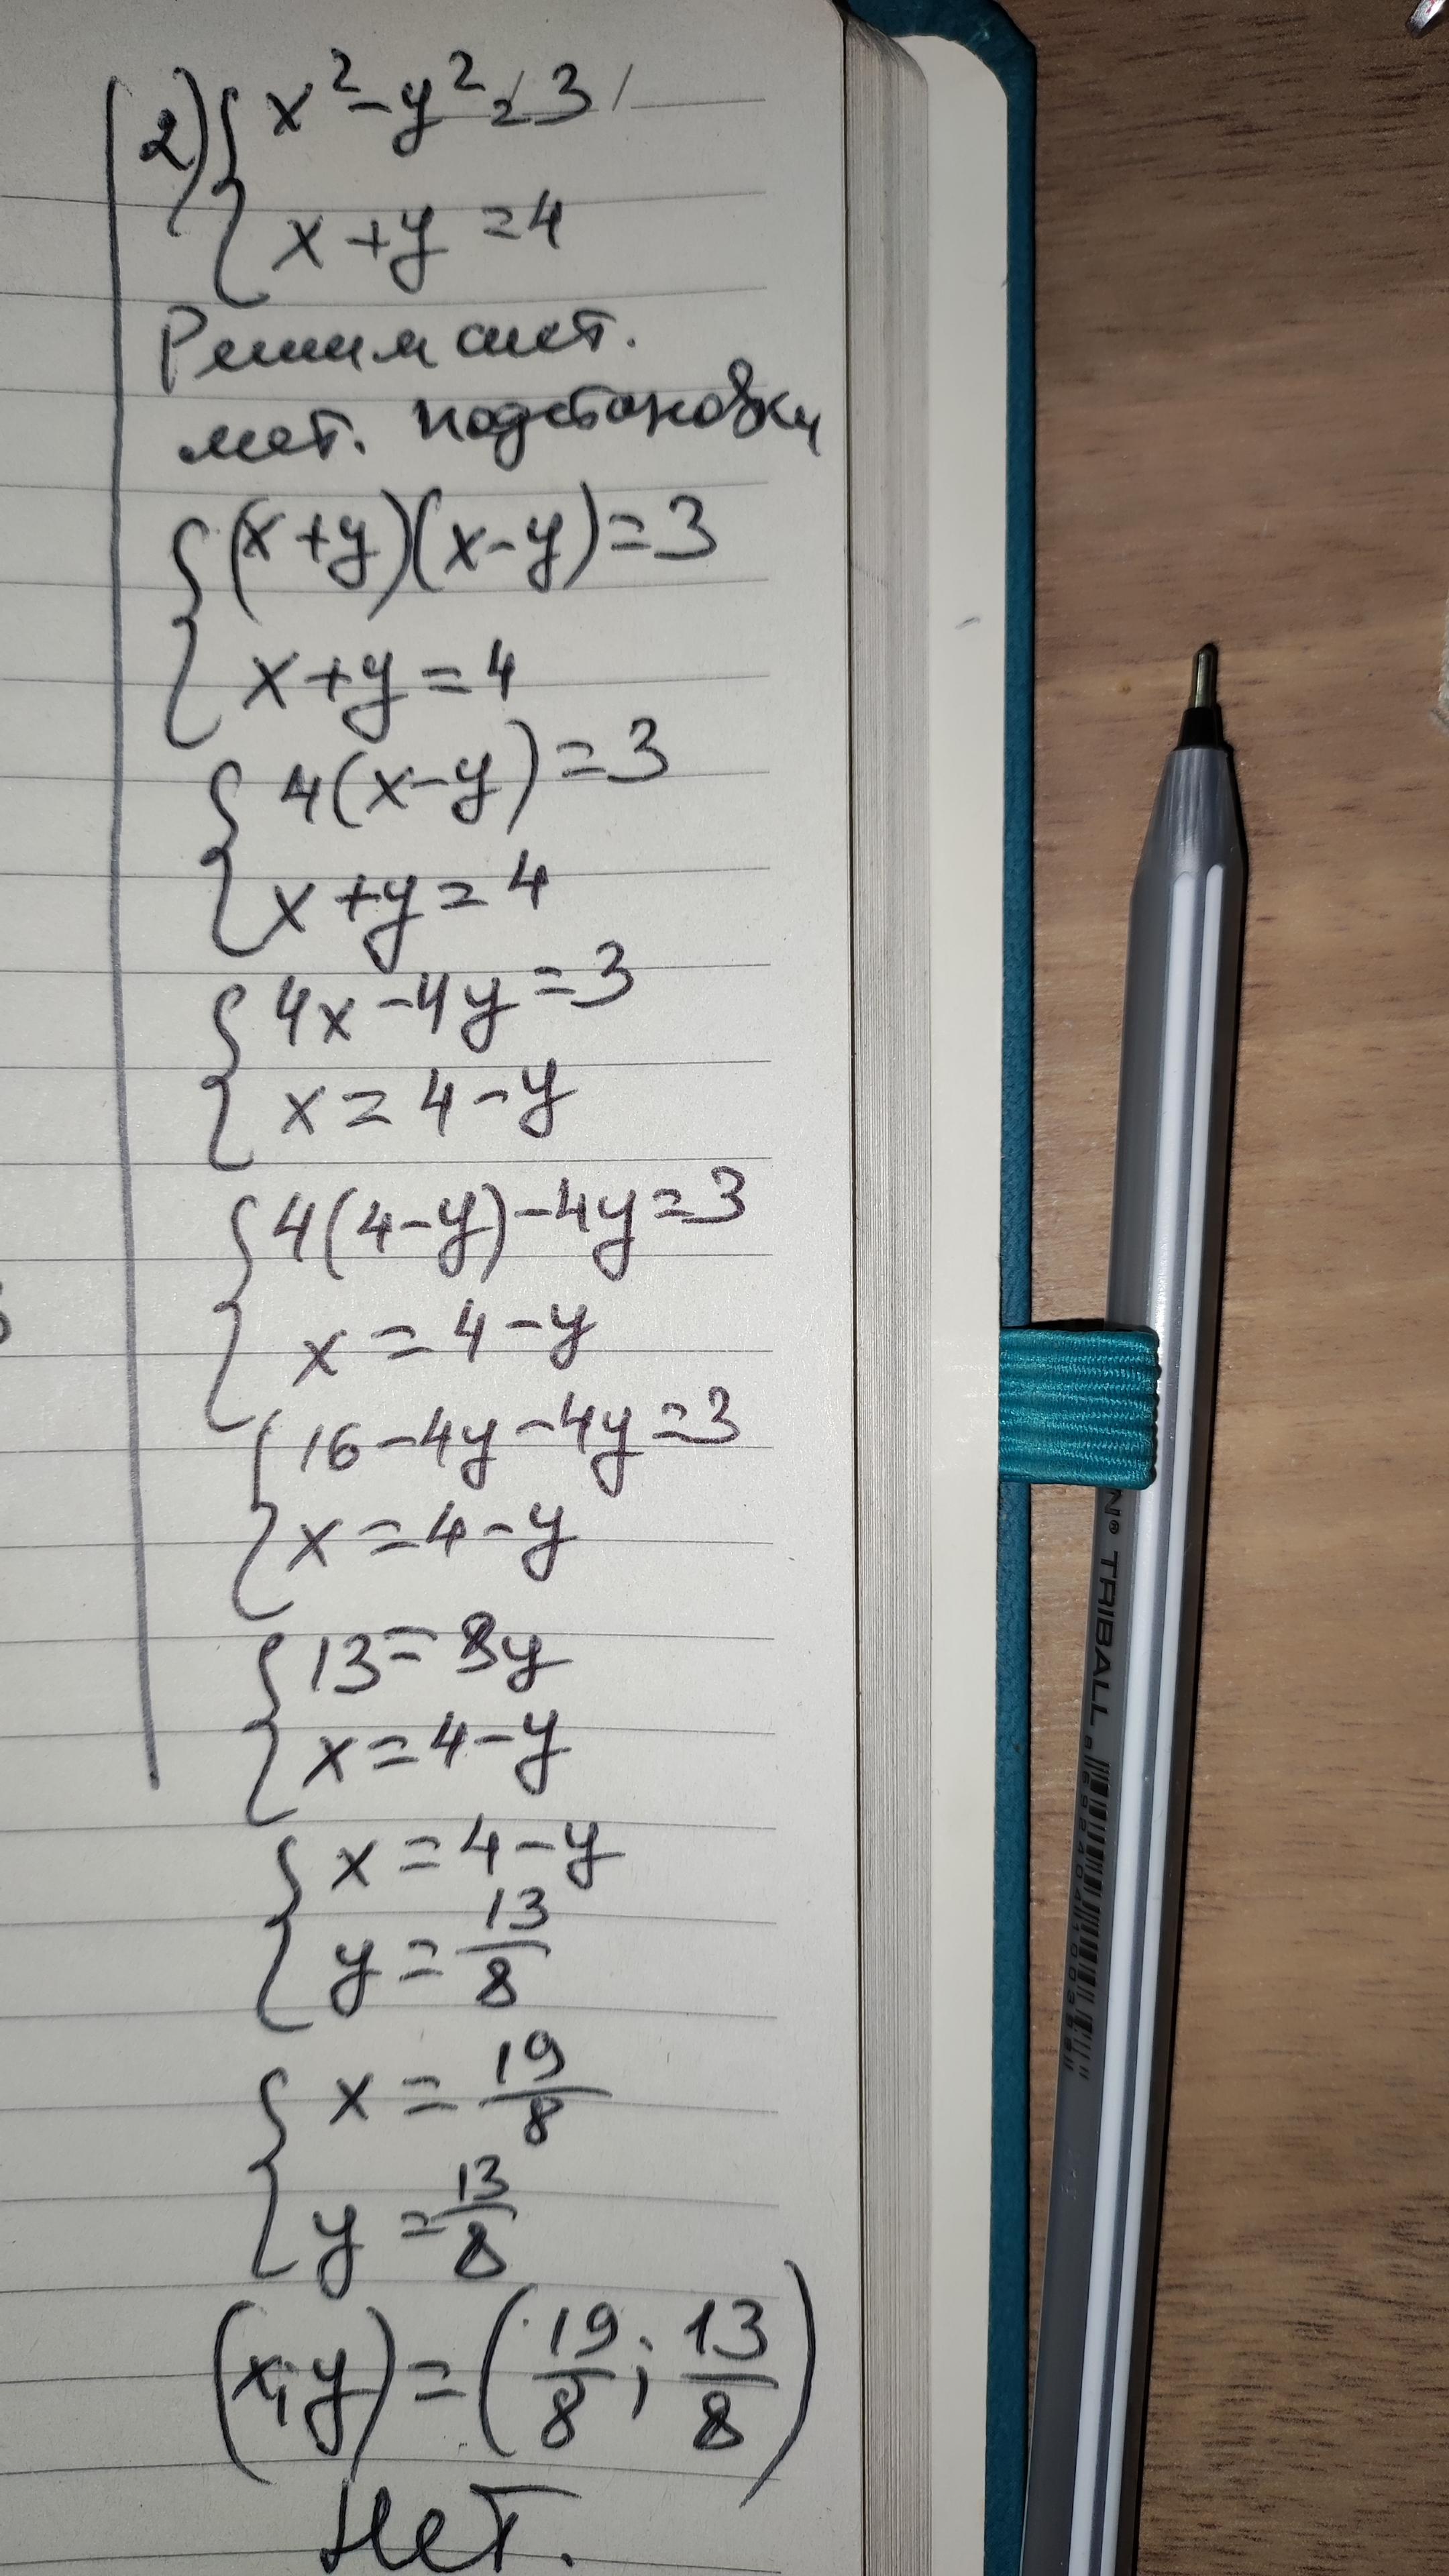 2) { x² - y² = 3
x + y = 4
Решим сист.
мет. подстановки
{ (x + y)(x - y) = 3
x + y = 4
{ 4(x - y) = 3
x + y = 4
{ 4x - 4y = 3
x = 4 - y
{ 4(4 - y) - 4y = 3
x = 4 - y
{ 16 - 4y - 4y = 3
x = 4 - y
{ 13 = 8y
x = 4 - y
{ x = 4 - y
y = 13/8
{ x = 19/8
y = 13/8
(x; y) = (19/8; 13/8)
Нет.
N® TRIBALL